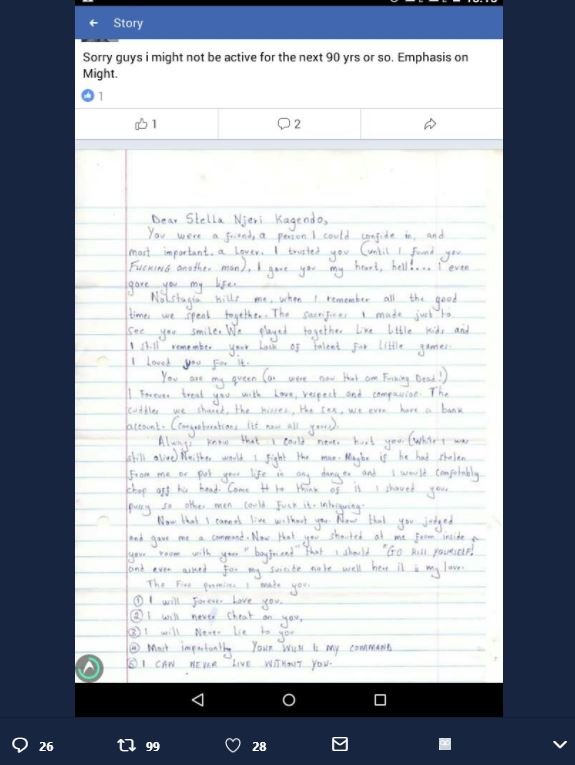 Story
Sorry guys i might not be active for the next 90 yrs or so. Emphasis on
Might.
1
1
2
Dear Stella Njeri Kagendo,
You were a friend, a person I could confide in, and
most important, a Lover. I trusted you (until I found you
FUCKING another man), I gave you my heart, hell!.... i even
gave you my life.
Nolstagia kills me, when I remember all the good
times we spent together. The sacrifices I made just to
see you smile. We played together like little kids and
I still remember your lack of talent for little games.
I Loved you for it.
You are my queen (or were now that am Fucking Dead!)
I Forever treat you with Love, respect and compassion. The
cuddles we shared, the kisses, the sex, we even have a bank
account. (Congraturations its now all yours).
Always know that I could never hurt you (while I was
still alive) Neither would I fight the man. Maybe if he had stolen
from me or put your life in any danger and I would comfortably
chop off his head. Come to think of it I shaved your
pussy so other men could fuck it. Intriguing.
Now that I cannot live without you. Now that you judged
and gave me a command. Now that you shouted at me from inside
your room with your "boyfriend" that I should "GO KILL YOURSELF!
and even asked for my suicide note well here it is my love.
The Five promises I made you.
① I will forever Love you.
② I will never cheat on you,
③ I will Never Lie to you
④ Most importantly YOUR WISH IS MY COMMAND
⑤ I CAN NEVER LIVE WITHOUT YOU.
26
99
28